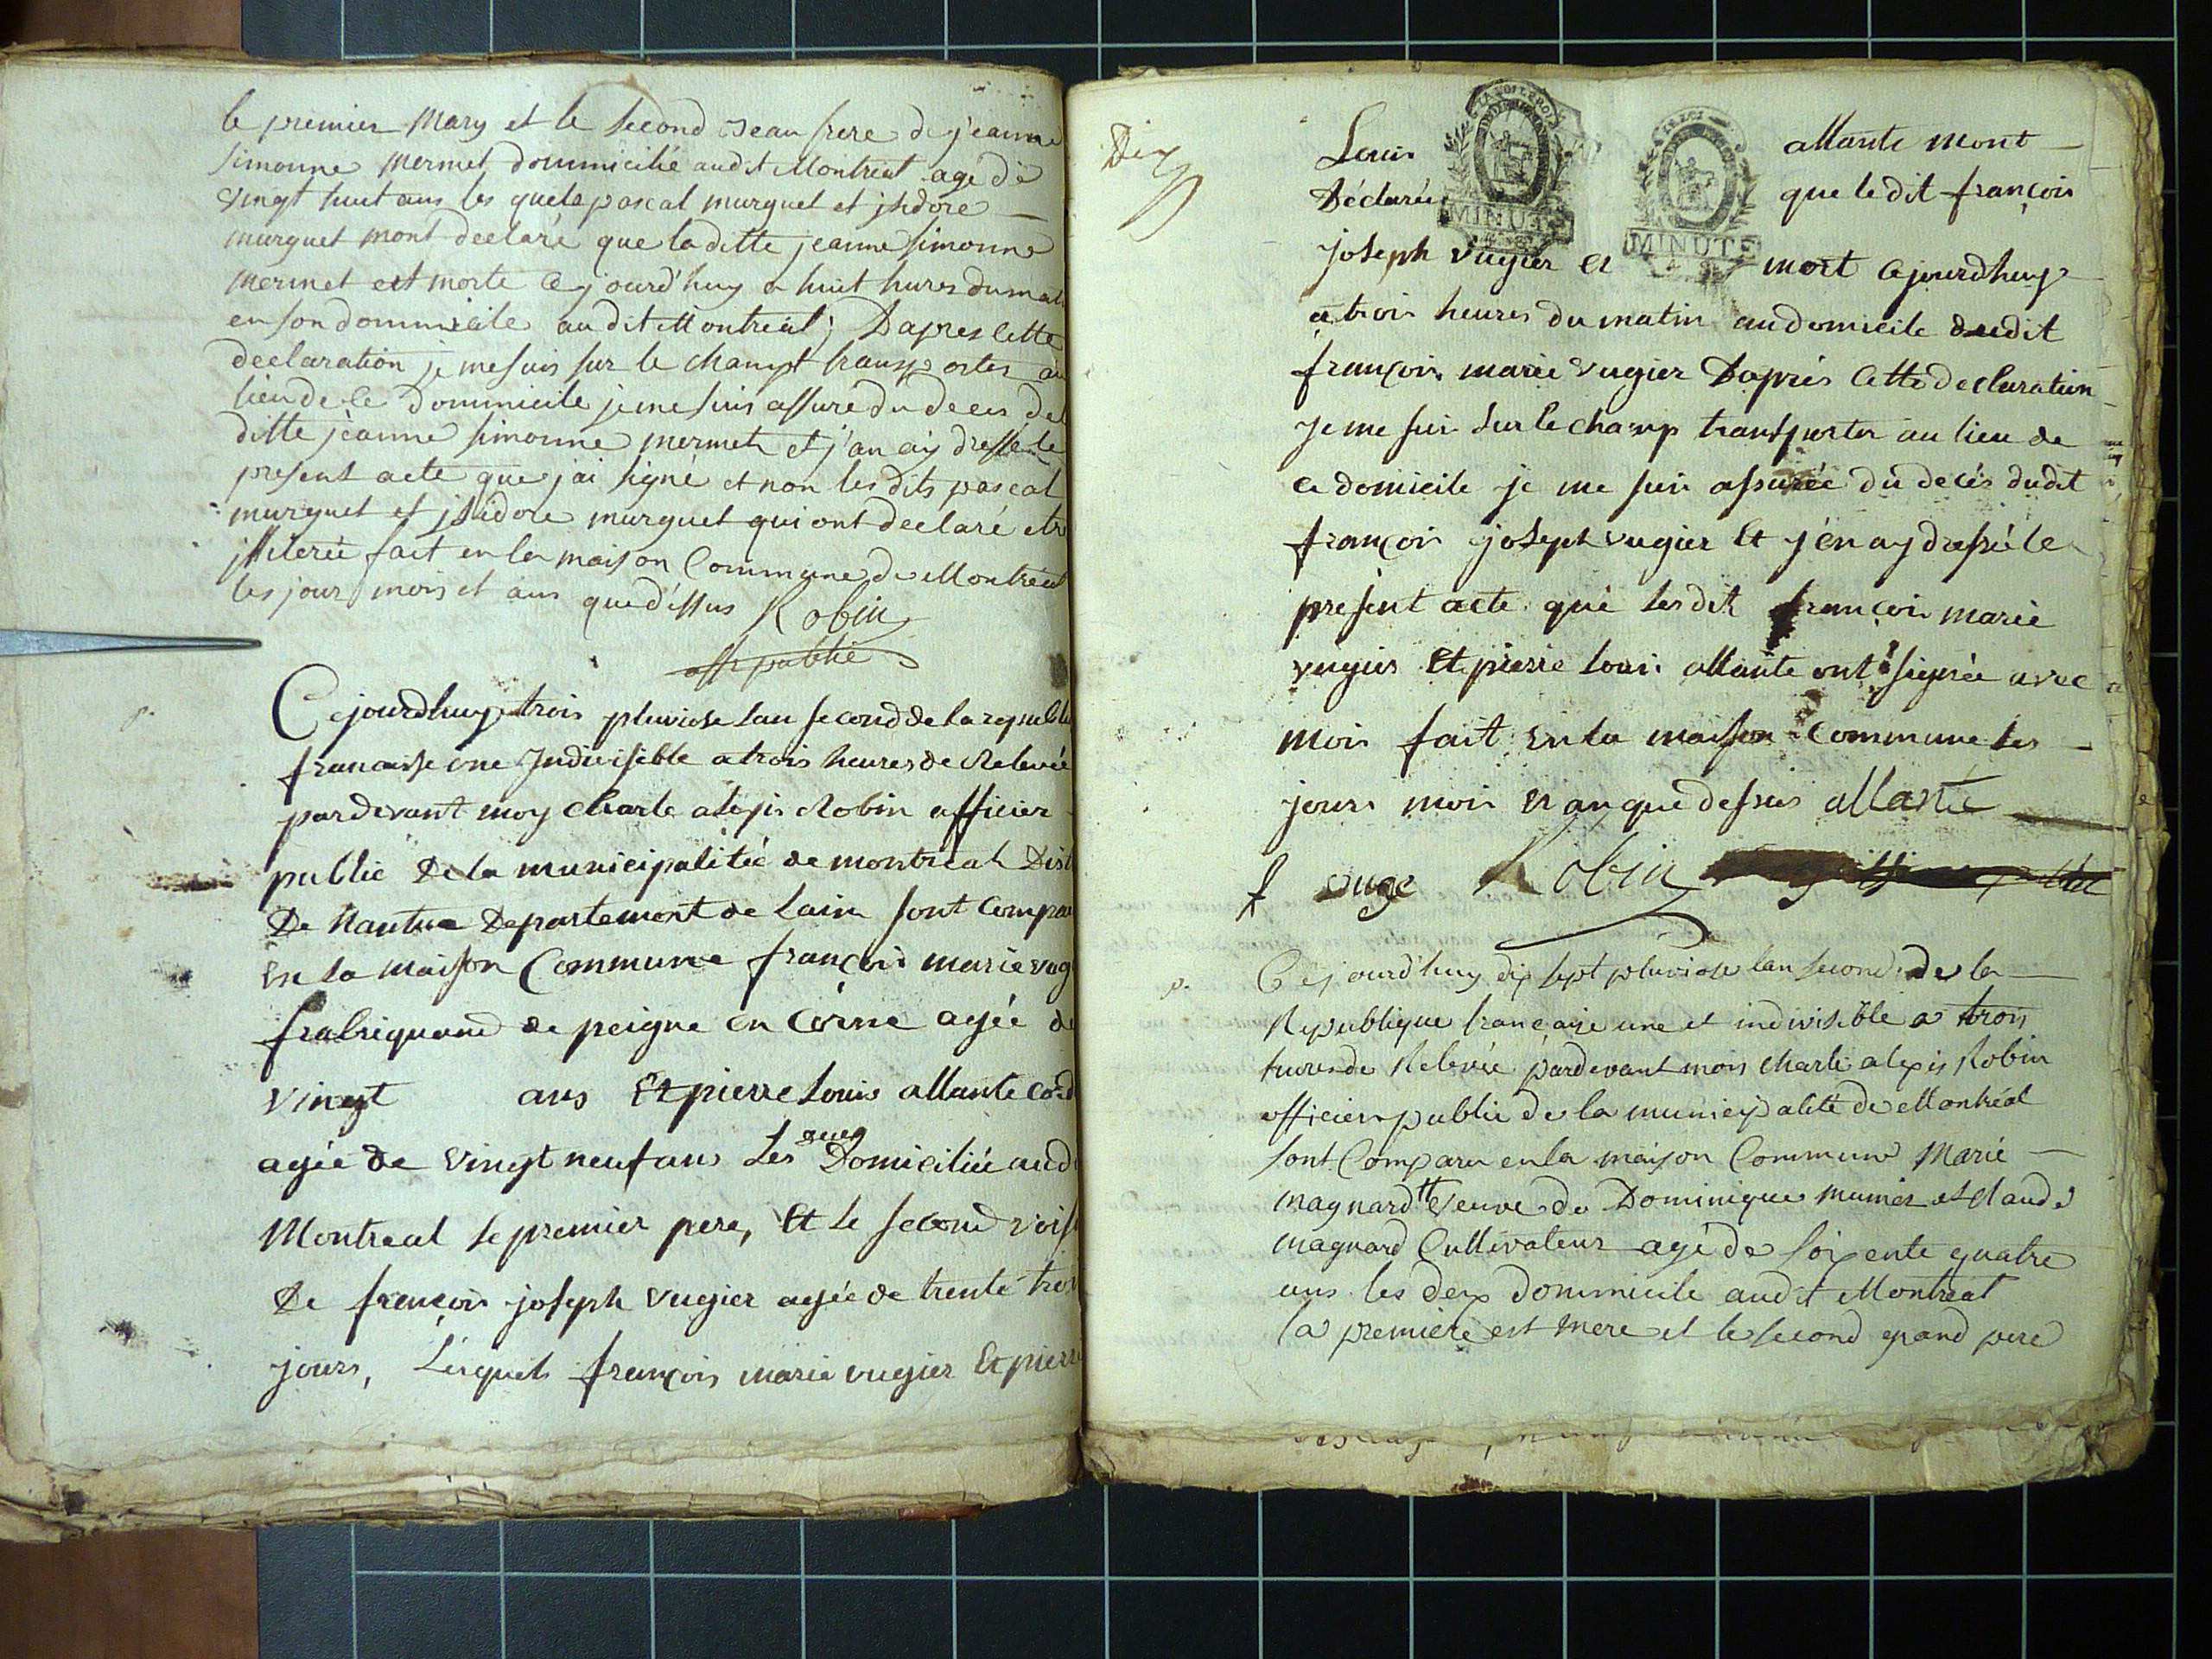 le premier Mary et le second Jean frere de jeanne
simonne mermet dommicilié audit Montreal agé de
vingt huit ans les quels pascal murguet et jsidore
murguet mont declaré que laditte jeanne simonne
mermet est morte Cejourd'huy a huit hures du mat
en son dommicile audit Montreal; Dapres cette
declaration je me suis sur le champt transportes au
lieu de ce dommicile je me suis assure du deces de
ditte jeanne simonne mermet et j'an ay dressé le
present acte que j'ai signé et non les dits pascal
murguet et jsidore murguet qui ont declaré etre
jlliteré fait en la maison Commune de Montreal
les jour mois et ans que d'essus Robin
offi publié
Cejourdhuy trois pluviose lan second de la republi
francaisse une Indivisible a trois heures de Relevée
pardevant moy Charle alexis Robin officier
public De la municipalitée de montreal Dist
De Nantua Departement de lain sont Compar
en la maison Commune françois marie vug
frabriquand de peigne en Corne agée de
vingt ans Et pierre Louis allante Cord
agée de vingt neuf ans Les deux Domiciliée audi
Montreal le premier pere, Et le second vois
De françois joseph vugier agée de trente trois
jours, Lesquels françois marie vugier Et pierre
Dix
Louis allante mont
Déclarée que le dit françois
MINUTE
MINUTE
joseph vugier et mort Cejourdhuy
a trois heures du matin audomicile dudit
françois marie vugier Dapres Cette declaration
je me suis sur le champ transporter au lieu de
ce domicile je me suis assurée du decés dudit
françois joseph vugier Et j'en ay dressée le
present acte que lesdit françois marie
vugier Et pierre Louis allante ont signée avec
mois fait en la maison Commune les
jours mois et an que dessus allante
f vuge Robin
Cejourd'huy dix sept pluviose lan second de la
Republique française une et indivisible a trois
hures de Relevée pardevant mois charle alexis Robin
officier public de la municipalité de Montréal
sont Comparu en la maison Commune Marie
magnard veuve de Dominique munier et Claude
magnard Cultivateur agé de soixente quatre
ans les deux dommicile audit Montreal
la premiere est mere et le second grand pere